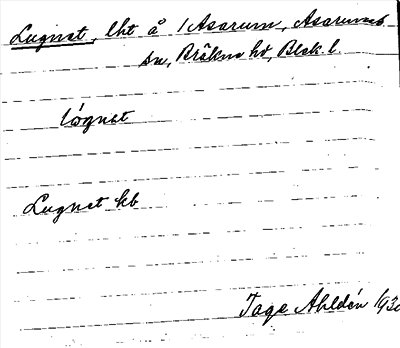 Lugnet, lht å 1 Asarum, Asarums
sn, Bräkne hd, Blek. l.
lógnet
Lugnet kb
Tage Ahldén 193